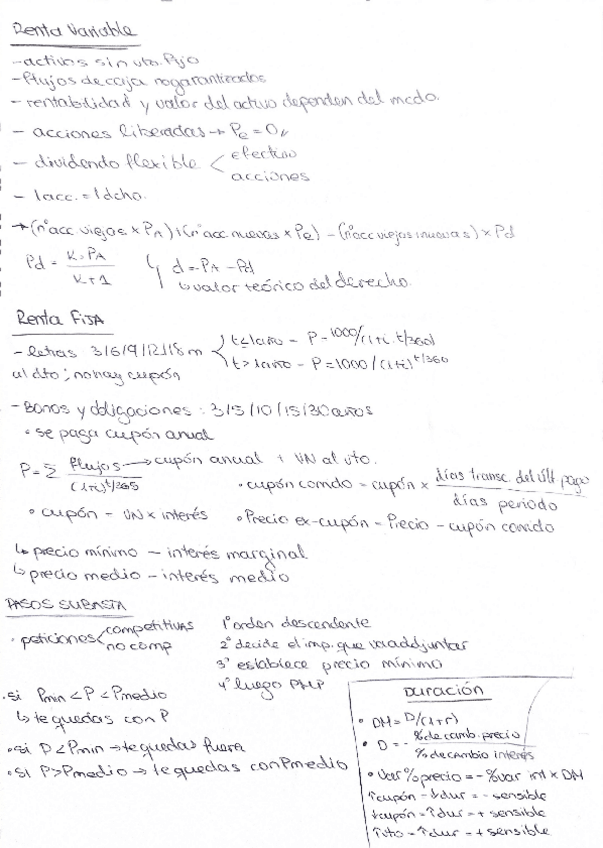 Renta Variable
- activos sin vto. fijo
- flujos de caja no garantizados
- rentabilidad y valor del activo dependen del mcdo.
- acciones liberadas → Pe = 0
- dividendo flexible < efectivo
acciones
- 1 acc. = 1 dcho.
→ (nº acc viejas x PA) + (nº acc nuevas x Pe) - (nº acc viejas + nuevas) x Pd
Pd = K · PA / K + 1
d = PA - Pd
↳ valor teórico del derecho.
Renta FIJA
- letras 3/6/9/12/18 m
t < 1 año - P = 1000/(1+i · t/360)
t > 1 año - P = 1000/(1+i)^t/360
al dto ; no hay cupón
- Bonos y obligaciones : 3/5/10/15/30 años
• se paga cupón anual
P = Σ flujos / (1+i)^t/365 → cupón anual + VN al vto.
• cupón corrido = cupón x días transc. del últ pago / días periodo
• cupón - VN x interés
• Precio ex-cupón = Precio - cupón corrido
↳ precio mínimo - interés marginal
↳ precio medio - interés medio
PASOS SUBASTA
• peticiones < competitivas
no comp
1º orden descendente
2º decide el imp. que va a adjuntar
3º establece precio mínimo
4º luego PMP
• si Pmin < P < Pmedio
↳ te quedas con P
• si P < Pmin → te quedas fuera
• si P > Pmedio → te quedas con Pmedio
Duración
• DM = D/(1+r)
• D = - % de camb. precio / % de cambio interés
• Var % precio = - % var int x DM
↑ cupón - ↓ dur = - sensible
↓ cupón - ↑ dur = + sensible
↑ vto - ↑ dur = + sensible